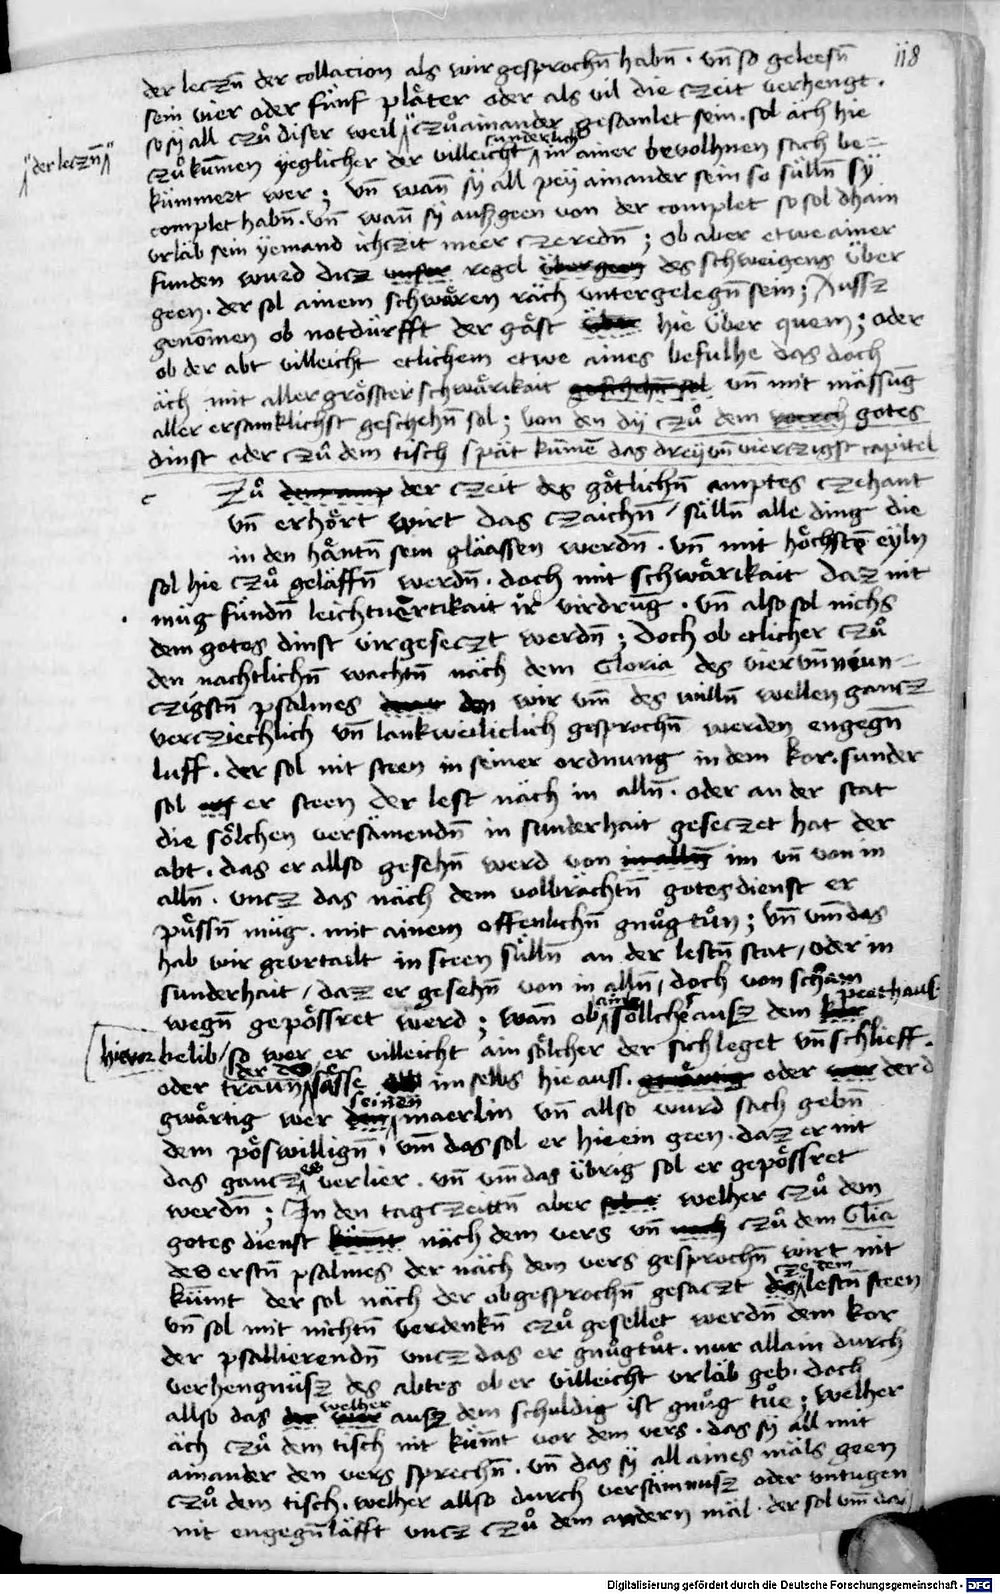 118
der leczn̄ der collacion als wir gesprochn̄ habn̄ . vn̄ so geleesn̄
sein vier oder fünf pläter oder als vil die czeit verhengt .
so sy all czů diser weil czů ainander gesamlet sein . sol äch hie
"der leczn̄"
sunderlich
czů kummen yeglicher der villeicht in ainer bevolhnen sach be=
kümmert wer ; vn̄ wan̄ sy all peÿ ainander sein so sülln̄ sÿ
complet habn̄ . vn̄ wan̄ sy auſzgeen von der complet so sol dhain
vrläb sein yemand ichczit meer czeredn̄ ; ob aber etwe ainer
funden wurd dicz unser regel übergeen des schweigens über
geen . der sol ainem schwären räch untergelegn̄ sein ; Aussz
genomen ob notdürfft der gäst über hie über quem ; oder
ob der abt villeicht etlichem etwe aines befulhe das doch
äch mit aller grösster schwärikait geschehn̄ sol vn̄ mit mässūg
aller ersamklichst geschehn̄ sol ; von den dÿ czů dem werch gotes
dinst oder czů dem tisch spät kumē das dreÿ vn̄ vierczigst capitel
c
Zů dem amp der czeit des götlichn̄ amptes czehant
vn̄ erhört wirt das czaichn̄ / sülln̄ alle ding die
in den häntn̄ sein gläassen werdn̄ . vn̄ mit höchstē eyln
sol hie czů geläffn̄ werdn̄ . doch mit schwärikait daz nit
müg fundn̄ leichtvertikait ir virdrūg . vn̄ also sol nichs
dem gotes dinst virgeseczt werdn̄ ; Doch ob etlicher czů
den nachtlichn̄ wachtn̄ näch dem Gloria des vierun̄neun=
czigstn̄ psalmes den wir vm̄ des willn̄ wellen gancz
vercziechlich vn̄ lankweiliclich gesprochn̄ werden engegn̄
luff . der sol nit steen in seiner ordnung in dem kor . sunder
sol er steen der lest näch in alln̄ . oder an der stat
die sölchen versämendn̄ in sunderhait geseczet hat der
abt . das er allso gesehn̄ werd von in alln̄ im vn̄ von in
alln̄ . vncz das näch dem volbrächtn̄ gotesdienst er
püssn̄ müg . mit ainem offenlichn̄ gnůg tůn ; vn̄ vm̄ das
hab wir geurtailt in steen sülln̄ an der lestn̄ stat / oder in
sunderhait / daz er gesehn̄ von in alln̄ / doch von scham
wegn̄ gepössret werd ; wan̄ ob sollcher ausz dem kor
petthaus
hievor belib / so wer er villeicht ain sölcher der sich leget vn̄ schlieff .
oder traun sässe im selbs hie auss . gwärtig oder wer der d
seinen
gwärtig wer den maerlin vn̄ allso wurd stach gebn̄
dem pöswillign̄ . vm̄ das sol er hie ein geen . daz er nit
das gancz verlier . vn̄ vm̄ das übrig sol er gepössret
werdn̄ ; In den tagczeittn̄ aber welher czů dem
gotes dienst kümt näch dem vers vn̄ nach czů dem Glia
des erstn̄ psalmes der näch dem vers gesprochn̄ wirt nit
cze dem
kümt der sol näch der obgesprochn̄ gesaczt des lestn̄ steen
vn̄ sol mit nichtn̄ verdenkn̄ czů gesellet werdn̄ dem kor
der psallierendn̄ vncz das er gnůgtůt . nur allain durch
verhengnüsz des abtes ob er villeicht vrläb geb . doch
welher
allso das der wer ausz dem schuldig ist gnůg tůe ; welher
äch czů dem tisch nit kümt vor dem vers . das sy all mit
ainander den vers sprechn̄ . vn̄ das sy all aines mäls geen
czů dem tisch . welher allso durch versämnusz oder vntugen
nit engegn̄läfft vncz czů dem andern mäl . der sol vm̄ dar
Digitalisierung gefördert durch die Deutsche Forschungsgemeinschaft - DFG